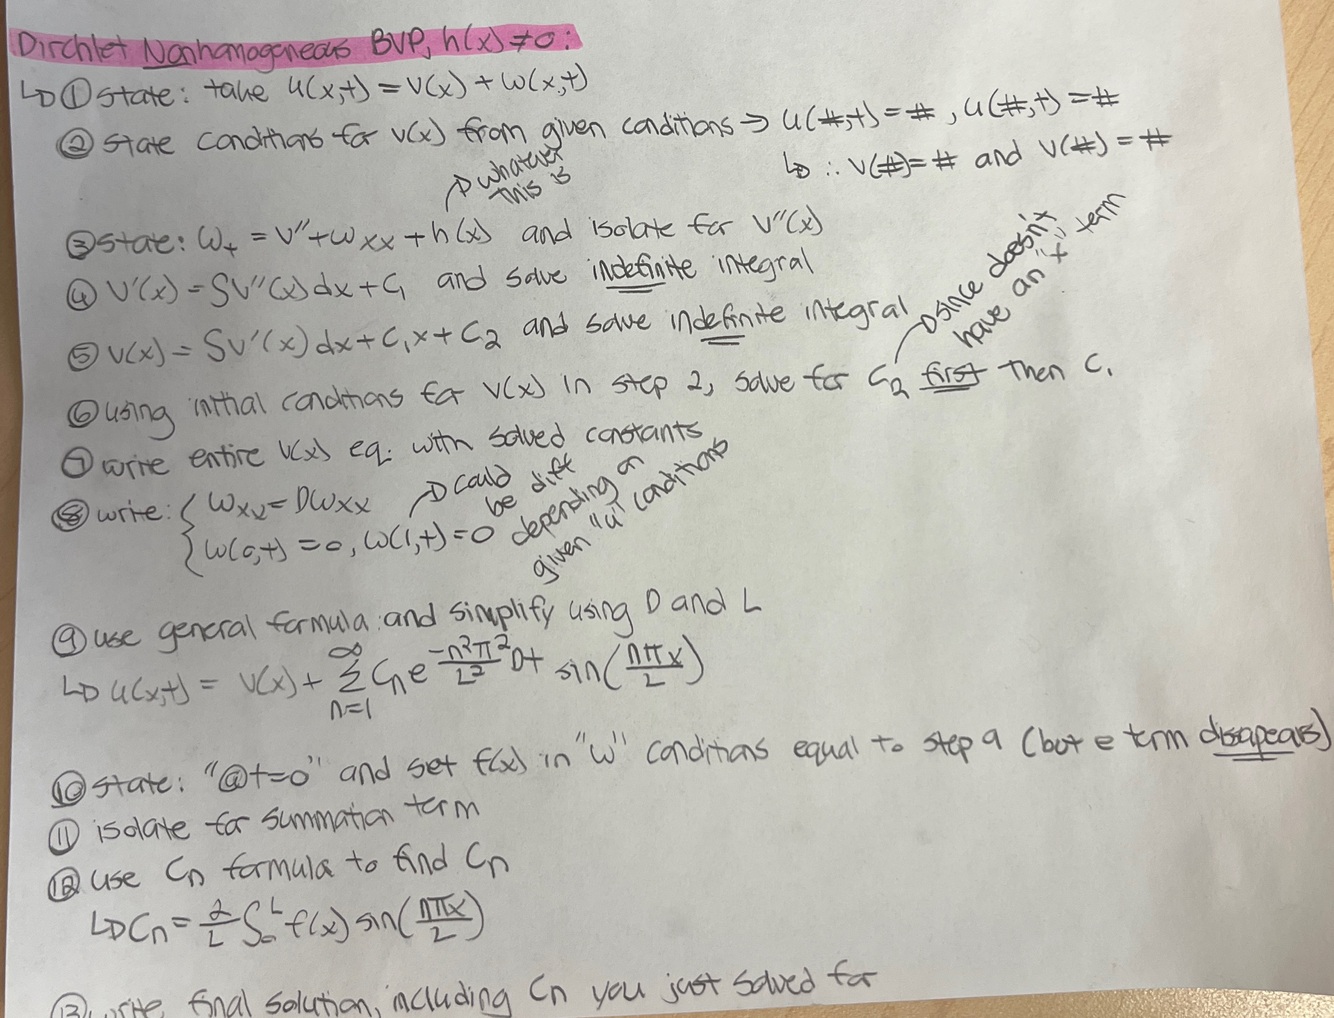 Dirchlet Nonhomogeneous BVP, h(x)≠0:
↳ ① state: take u(x,t) = v(x) + w(x,t)
② state conditions for v(x) from given conditions → u(#,t) = #, u(#,t) = #
↳ ∴ v(#) = # and v(#) = #
→ whatever this is
③ state: w_t = v'' + w_xx + h(x) and isolate for v''(x)
④ v'(x) = ∫v''(x)dx + c₁ and solve indefinite integral
⑤ v(x) = ∫v'(x)dx + c₁x + c₂ and solve indefinite integral
→ since doesn't have an "x" term
⑥ using initial conditions for v(x) in step 2, solve for c₂ first then c₁
⑦ write entire v(x) eq. with solved constants
⑧ write: { w_xx = Dw_xx
{ w(0,t) = 0, w(1,t) = 0
→ could be diff depending on given "u" conditions
⑨ use general formula: and simplify using D and L
↳ u(x,t) = v(x) + ∞ Σ n=1 Cₙ e^(-n²π²/L² Dt) sin(nπx/L)
⑩ state: "@t=0" and set f(x) in "w" conditions equal to step 9 (but e term disapears)
⑪ isolate for summation term
⑫ use Cn formula to find Cn
↳ Cn = 2/L ∫₀ᴸ f(x) sin(nπx/L)
⑬ write final solution, including Cn you just solved for